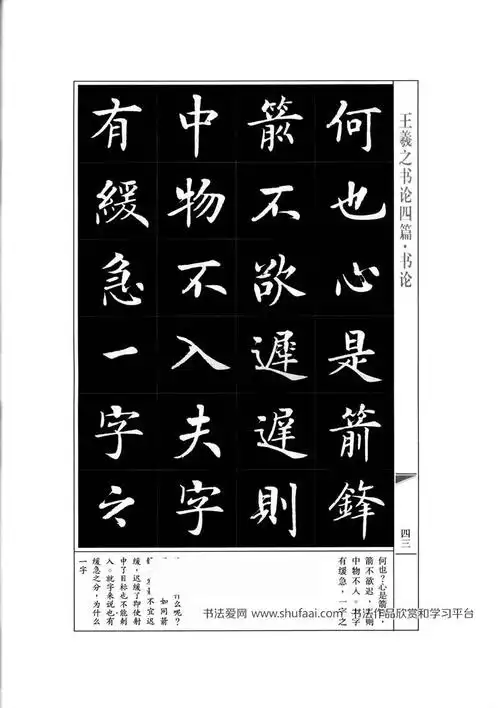 何也心是箭鋒
箭不欲遲遲則
中物不入夫字
有緩急一字之
王羲之书论四篇·书论
四三
何也?心是箭
箭不欲迟,则
中物不入。字
有缓急,一字之
什么呢?
如同箭
不宜迟
缓,迟缓了即使射
中了目标也不能刺
入。就字来说也有
缓急之分,为什么
一字
书法爱网 www.shufaai.com 书法作品欣赏和学习平台